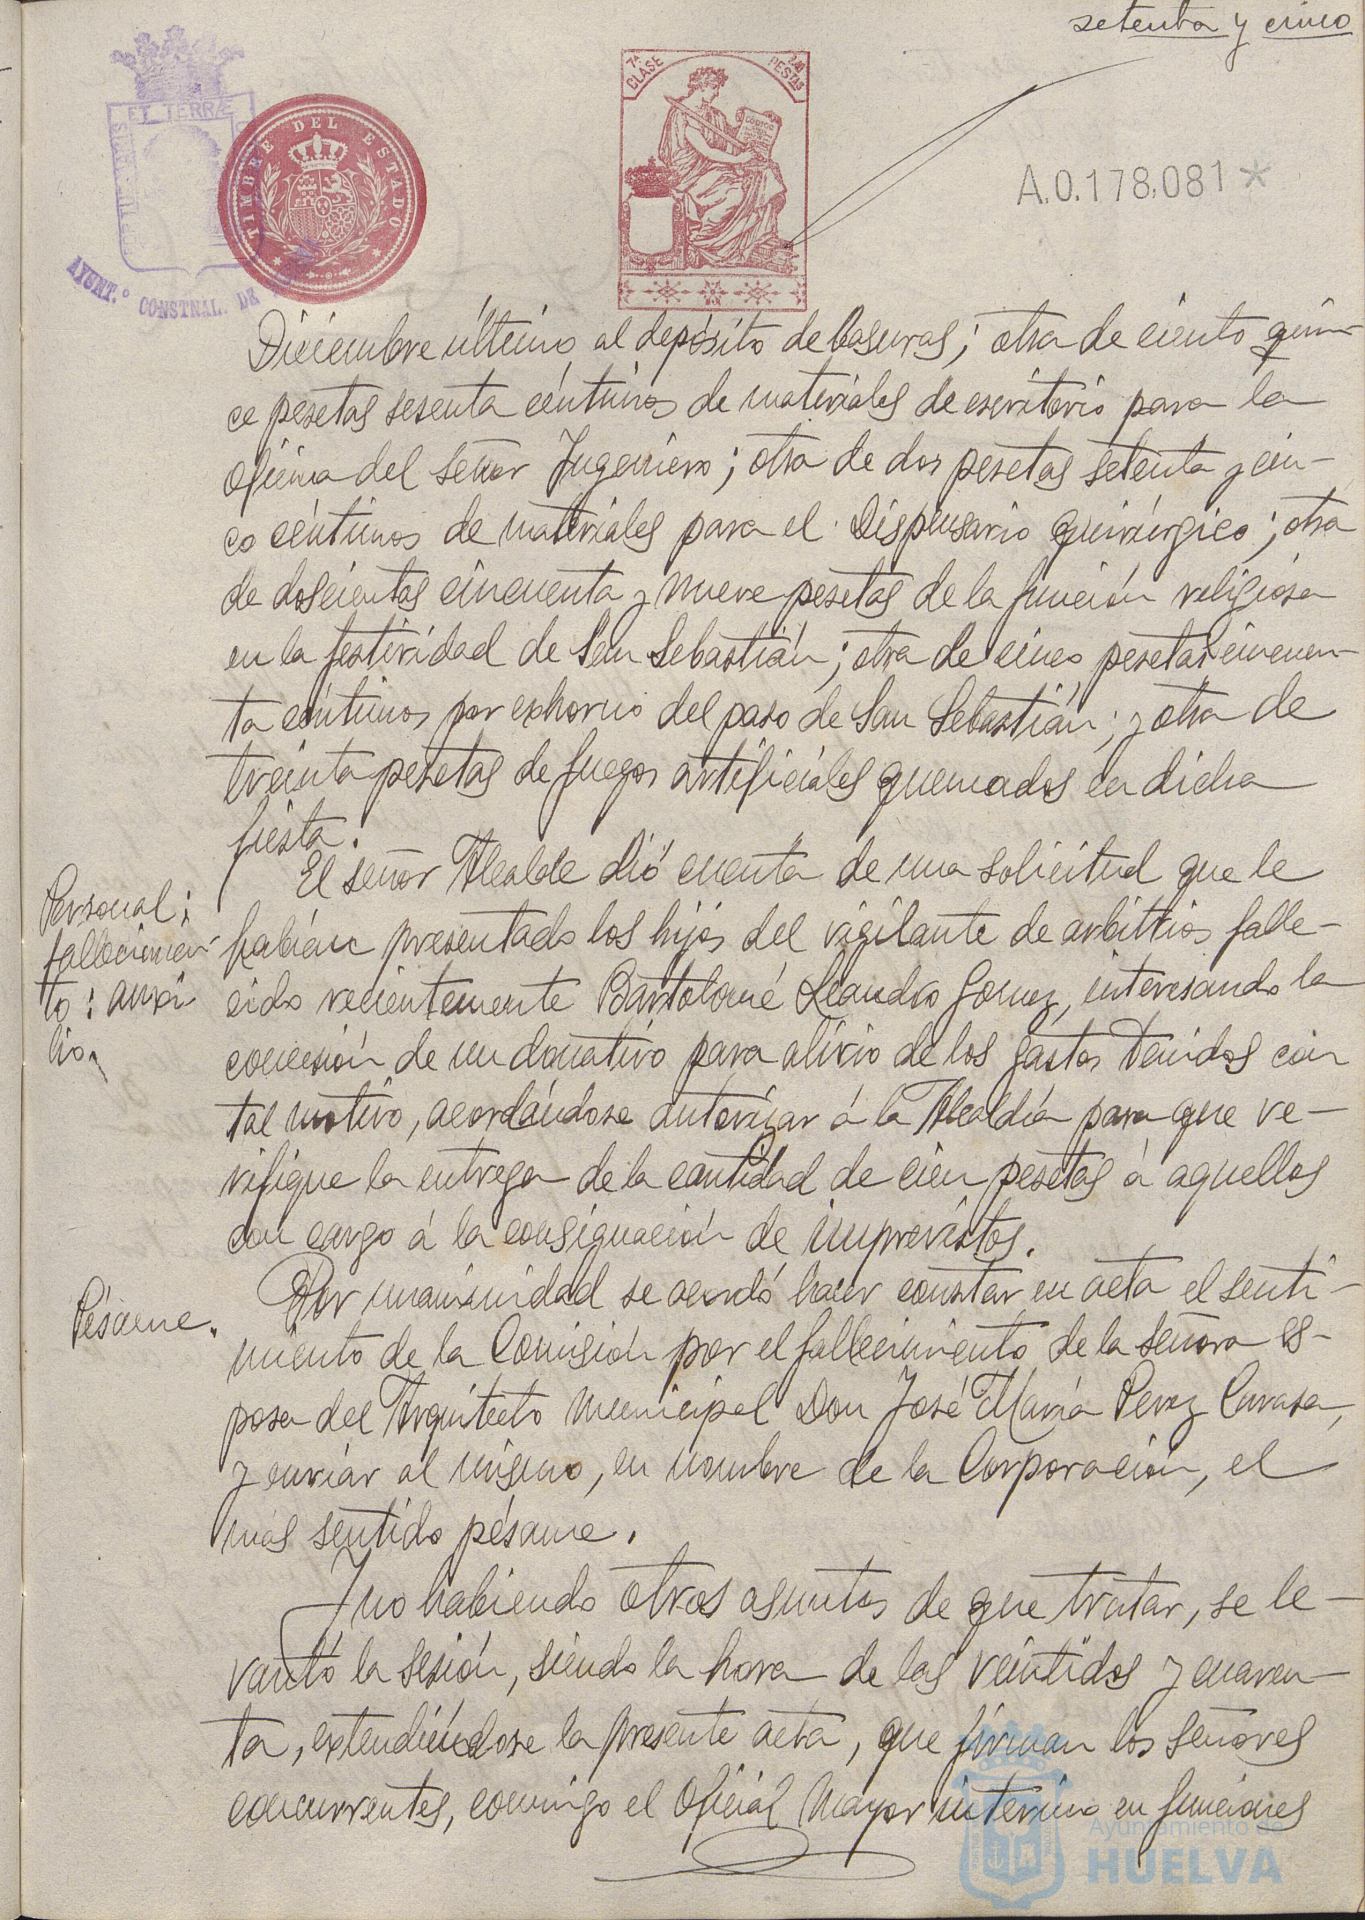 setenta y cinco
ET TERRÆ
AYUNT.º CONSTNAL. DE
TIMBRE DEL ESTADO
7ª CLASE
PESTAS
CODIGO
A.0.178,081*
Diciembre último al depósito de basuras; otra de ciento quin-
ce pesetas sesenta céntimos de materiales de escritorio para la
oficina del señor Ingeniero; otra de dos pesetas setenta y cin-
co céntimos de materiales para el Dispensario quirúrgico; otra
de doscientas cincuenta y nueve pesetas de la función religiosa
en la festividad de San Sebastián; otra de cinco pesetas cincuen-
ta céntimos por exhorno del paso de San Sebastián; y otra de
treinta pesetas de fuegos artificiales quemados en dicha
fiesta.
Personal:
fallecimien-
to: auxi-
lio.
El señor Alcalde dió cuenta de una solicitud que le
habían presentado los hijos del vigilante de arbitrios falle-
cido recientemente Bartolomé Leandro Gomez, interesando la
concesión de un donativo para alivio de los gastos tenidos con
tal motivo, acordándose autorizar á la Alcaldía para que ve-
rifique la entrega de la cantidad de cien pesetas á aquellos
con cargo á la consignación de imprevistos.
Pésame.
Por unanimidad se acordó hacer constar en acta el senti-
miento de la Comisión por el fallecimiento de la señora es-
posa del Arquitecto municipal Don José María Perez Carasa,
y enviar al mismo, en nombre de la Corporación, el
más sentido pésame.
Y no habiendo otros asuntos de que tratar, se le-
vantó la sesión, siendo la hora de las veintidos y cuaren-
ta, extendiéndose la presente acta, que firman los señores
concurrentes, conmigo el Oficial Mayor interino en funciones
Ayuntamiento de
HUELVA